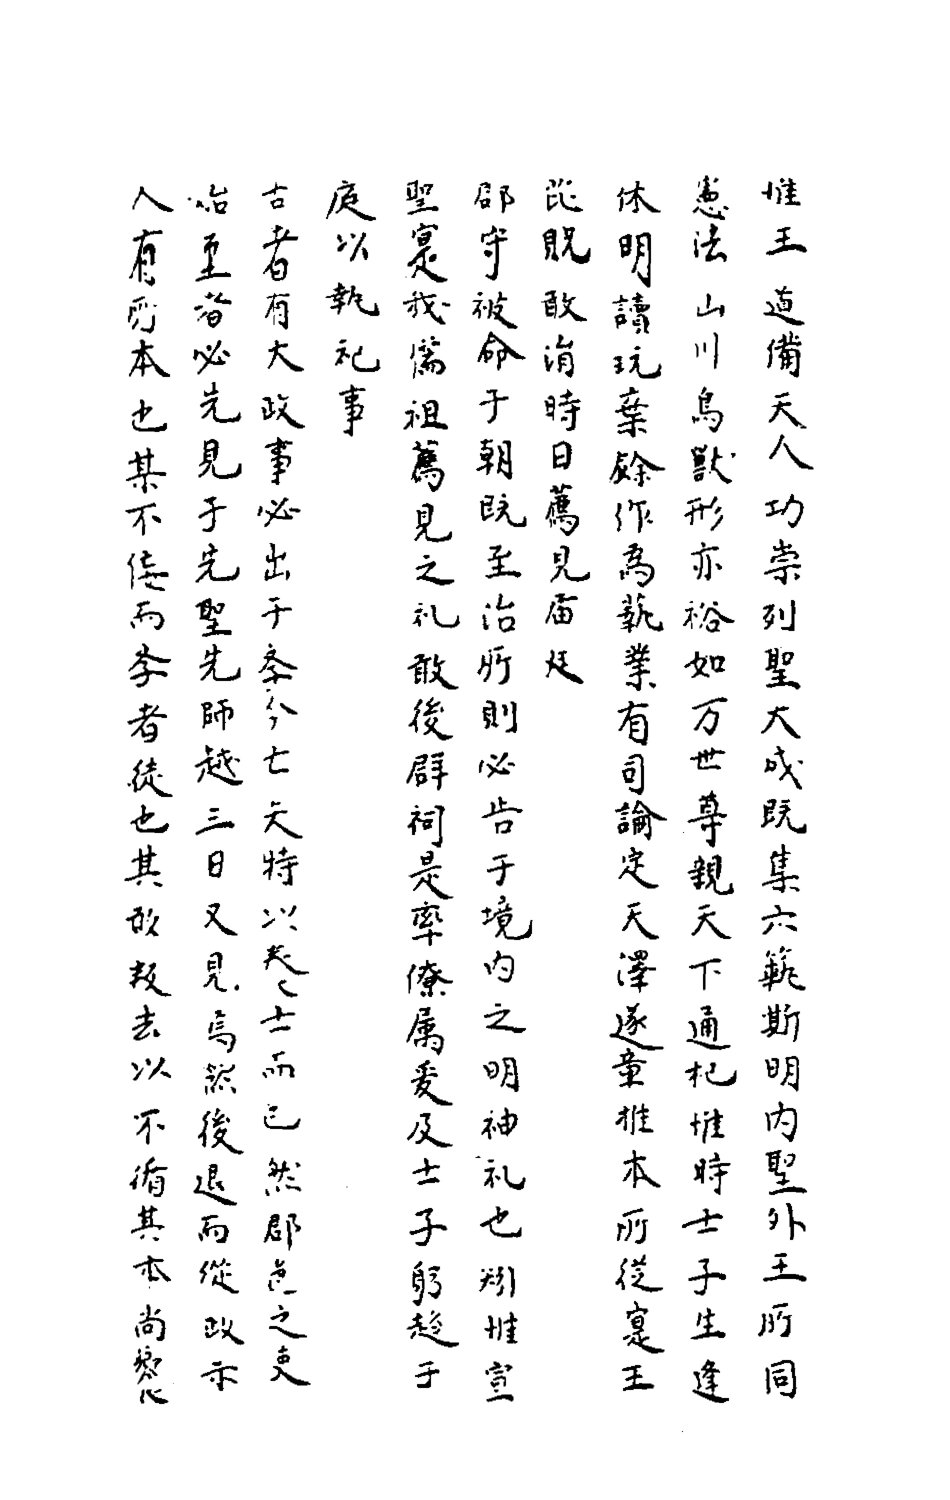 惟王道備天人功崇列聖大成既集六藝斯明内聖外王所同
憲法山川鳥獸形亦裕如万世尊親天下通祀惟時士子生逢
休明讀玩棄餘作為藝業有司論定天澤遂童推本所從寔王
既敢涓時日薦見庙廷
郡守被命于朝既至治所則必告于境内之明神礼也矧惟宣
聖寔我儒祖薦見之礼敢後群祠是率僚属爰及士子躬趍于
庭以執祀事
古者有大政事必出于斈今亡矣特以養士而已然郡邑之吏
始至者必先見于先聖先師越三日又見焉然後退而從政示
人有所本也某不佞而斈者徒也其敢叛去以不循其本尚